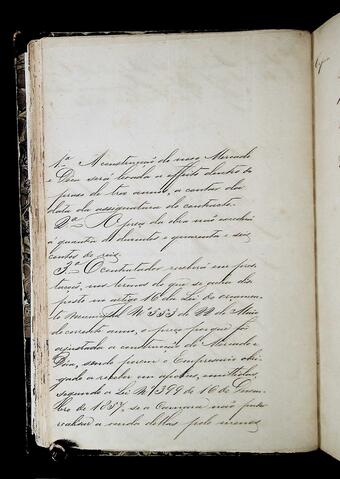 1ª A construcção do novo Mercado
e Doca será levada a effeito dentro do
praso de tres annos, a contar da
data da assignatura do contracto.
2ª O preço da obra não excederá
a quantia de duzentos e quarenta e seis
contos de reis.
3ª O contratador receberá em pres-
tações, nos termos do que se acha dis-
posto no artigo 16 da Lei do orçamen-
to Municipal Nº 553 de 22 de Maio
do corrente anno, o preço porque foi
ajustada a construcção do Mercado e
Doca, sendo porem o Empresario obri-
gado a receber em apolices, emittidas
segundo a Lei Nº 1399 de 16 de Dezem-
bro de 1857, se a Camara não poder
realisar a venda dellas pelo menos